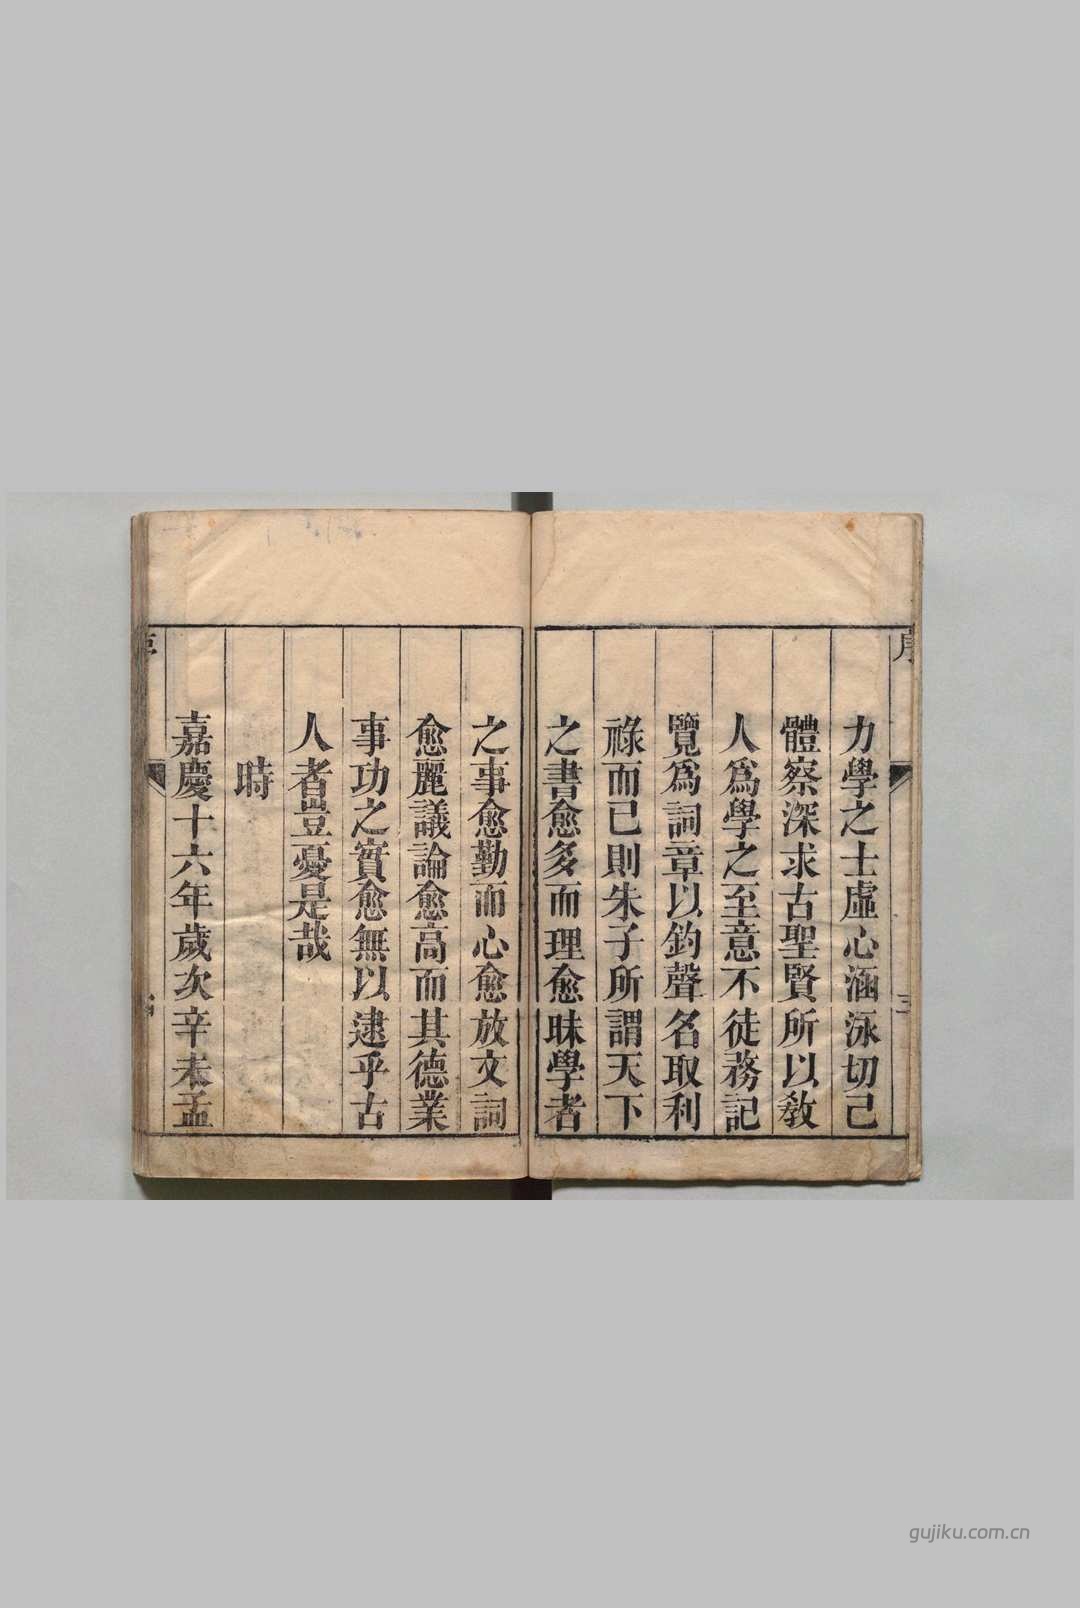 序
力學之士虛心涵泳切己
體察深求古聖賢所以敎
人爲學之至意不徒務記
覽爲詞章以釣聲名取利
祿而已則朱子所謂天下
之書愈多而理愈昧學者
之事愈勤而心愈放文詞
愈麗議論愈高而其德業
事功之實愈無以逮乎古
人者豈憂是哉
時
嘉慶十六年歲次辛未孟
gujiku.com.cn